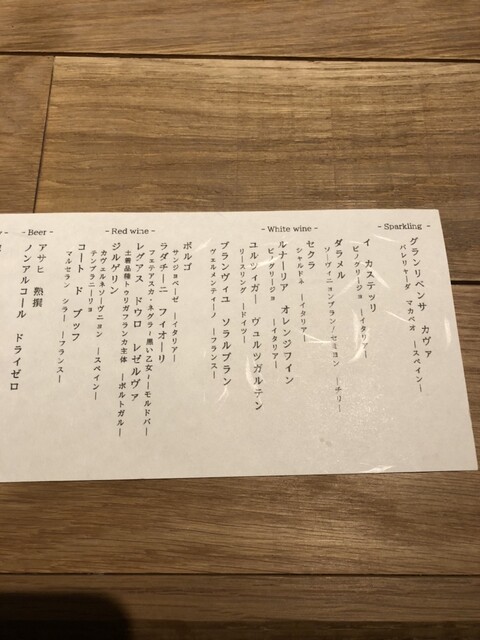 - Sparkling -
グランリベンサ カヴァ
パレリャーダ マカベオ ―スペイン―
- White wine -
イ カステッリ
ピノグリージョ ―イタリアー
ダラメル
ソーヴィニョンブラン/セミヨン ―チリー
セクラ
シャルドネ ―イタリアー
ルナーリア オレンジワイン
ピーグリージョ ―イタリアー
ユルツィガー ヴュルツガルテン
リースリング ―ドイツー
ブランヴィユ ソラルブラン
ヴェルメンティーノ ―フランスー
- Red wine -
ボルゴ
サンジョベーゼ ―イタリアー
ラダチーニ フィオーリ
フェテアスカ・ネグラ~黒い乙女~ ―モルドバー
レグアス ドウロ レゼルヴァ
土着品種トウリガフランカ主体 ―ポルトガルー
ジルゲリン
カヴェルネソーヴニヨン ―スペイン―
テンプラニーリョ
コート ド ブッフ
マルセラン シラー ―フランスー
- Beer -
アサヒ 熟撰
ノンアルコール ドライゼロ